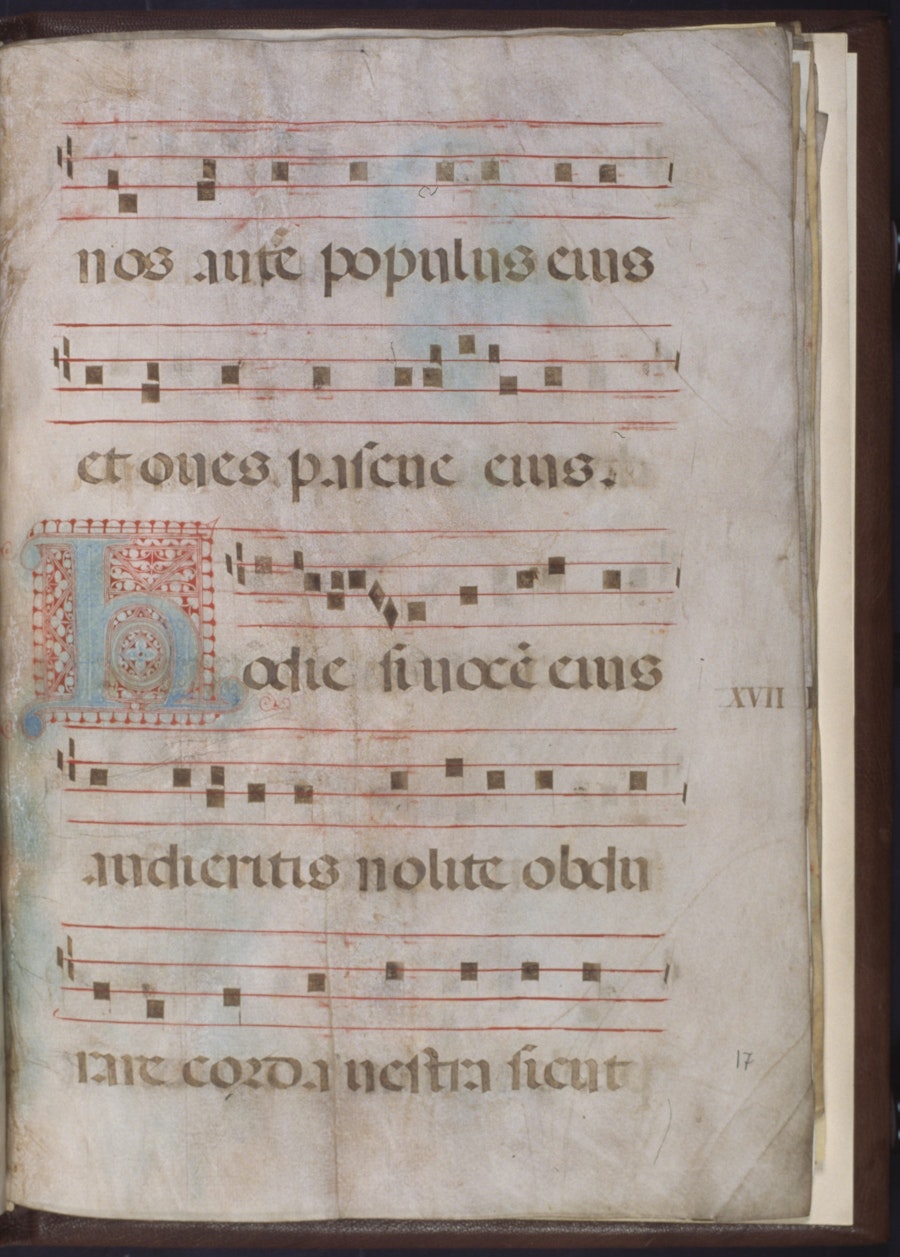 nos aute populus eius
et oues pascue eius.
Hodie si uocē eius
XVII
audieritis nolite obdu
rare corda uestra sicut
17